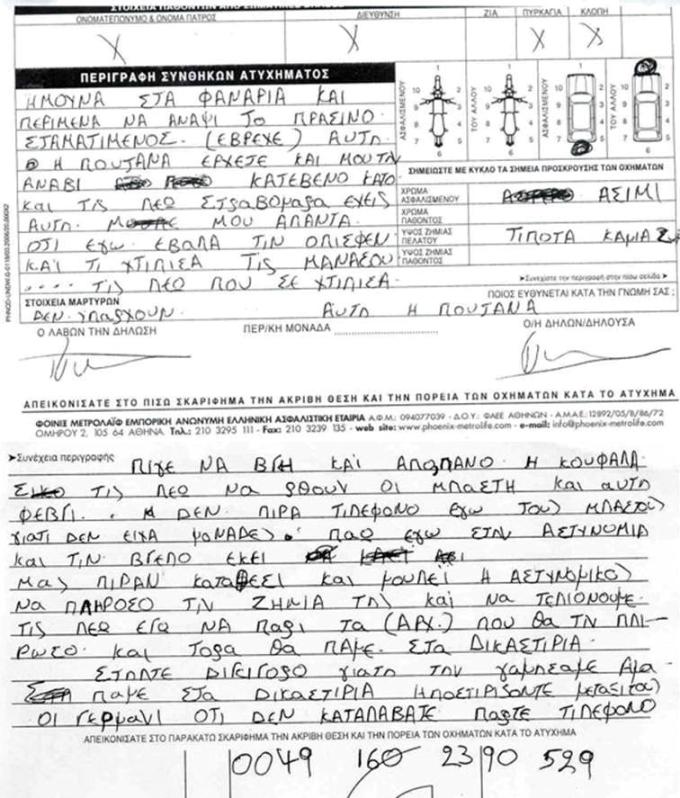 ΣΤΟΙΧΕΙΑ ΠΑΘΟΝΤΩΝ ΑΠΟ ΣΩΜΑΤΙΚΕΣ ΒΛΑΒΕΣ
ΟΝΟΜΑΤΕΠΩΝΥΜΟ & ΟΝΟΜΑ ΠΑΤΡΟΣ ΔΙΕΥΘΥΝΣΗ ΖΙΑ ΠΥΡΚΑΓΙΑ ΚΛΟΠΗ
X X X X
ΠΕΡΙΓΡΑΦΗ ΣΥΝΘΗΚΩΝ ΑΤΥΧΗΜΑΤΟΣ
ΗΜΟΥΝΑ ΣΤΑ ΦΑΝΑΡΙΑ ΚΑΙ
ΠΕΡΙΜΕΝΑ ΝΑ ΑΝΑΨΙ ΤΟ ΠΡΑΣΙΝΟ
ΣΤΑΜΑΤΙΜΕΝΟΣ. (ΕΒΡΕΧΕ) ΑΥΤΗ
Η ΠΟΥΤΑΝΑ ΕΡΧΕΤΕ ΚΑΙ ΜΟΥ ΤΗΝ
ΑΝΑΒΙ ΚΑΤΕΒΕΝΟ ΚΑΤΟ
ΚΑΙ ΤΙΣ ΛΕΩ ΣΤΡΑΒΟΜΑΡΑ ΕΧΕΙΣ
ΑΥΤΗ ΜΟΥ ΑΠΑΝΤΑ
ΟΤΙ ΕΓΩ ΕΒΑΛΑ ΤΙΝ ΟΠΙΣΦΕΝ
ΚΑΙ ΤΙ ΧΤΙΠΙΣΑ ΤΙΣ ΜΑΝΑΣΟΥ
.... ΤΙΣ ΛΕΩ ΠΟΥ ΣΕ ΧΤΙΠΙΣΑ
ΑΣΦΑΛΙΣΜΕΝΟΥ ΤΟΥ ΑΛΛΟΥ ΑΣΦΑΛΙΣΜΕΝΟΥ ΤΟΥ ΑΛΛΟΥ
ΣΗΜΕΙΩΣΤΕ ΜΕ ΚΥΚΛΟ ΤΑ ΣΗΜΕΙΑ ΠΡΟΣΚΡΟΥΣΗΣ ΤΩΝ ΟΧΗΜΑΤΩΝ
ΧΡΩΜΑ ΑΣΦΑΛΙΣΜΕΝΟΥ ΑΣΙΜΙ
ΧΡΩΜΑ ΠΑΘΟΝΤΟΣ
ΥΨΟΣ ΖΗΜΙΑΣ ΠΕΛΑΤΟΥ ΤΙΠΟΤΑ ΚΑΜΙΑ
ΥΨΟΣ ΖΗΜΙΑΣ ΠΑΘΟΝΤΟΣ
➤Συνεχίστε την περιγραφή στην πίσω σελίδα➤
ΣΤΟΙΧΕΙΑ ΜΑΡΤΥΡΩΝ ΠΟΙΟΣ ΕΥΘΥΝΕΤΑΙ ΚΑΤΑ ΤΗΝ ΓΝΩΜΗ ΣΑΣ ;
ΔΕΝ ΥΠΑΡΧΟΥΝ. ΑΥΤΗ Η ΠΟΥΤΑΝΑ
Ο ΛΑΒΩΝ ΤΗΝ ΔΗΛΩΣΗ ΠΕΡ/ΚΗ ΜΟΝΑΔΑ Ο/Η ΔΗΛΩΝ/ΔΗΛΟΥΣΑ
ΑΠΕΙΚΟΝΙΣΑΤΕ ΣΤΟ ΠΙΣΩ ΣΚΑΡΙΦΗΜΑ ΤΗΝ ΑΚΡΙΒΗ ΘΕΣΗ ΚΑΙ ΤΗΝ ΠΟΡΕΙΑ ΤΩΝ ΟΧΗΜΑΤΩΝ ΚΑΤΑ ΤΟ ΑΤΥΧΗΜΑ
ΦΟΙΝΙΞ ΜΕΤΡΟΛΑΪΦ ΕΜΠΟΡΙΚΗ ΑΝΩΝΥΜΗ ΕΛΛΗΝΙΚΗ ΑΣΦΑΛΙΣΤΙΚΗ ΕΤΑΙΡΙΑ Α.Φ.Μ.: 094077039 - Δ.Ο.Υ.: ΦΑΕΕ ΑΘΗΝΩΝ - Α.Μ.Α.Ε.: 12892/05/Β/86/72
ΟΜΗΡΟΥ 2, 105 64 ΑΘΗΝΑ. Τηλ.: 210 3295 111 - Fax: 210 3239 135 - web site: www.phoenix-metrolife.com - e-mail: info@phoenix-metrolife.com
➤Συνέχεια περιγραφής
ΠΙΓΕ ΝΑ ΒΓΗ ΚΑΙ ΑΠΟΠΑΝΟ Η ΚΟΥΦΑΛΑ
ΤΙΣ ΛΕΩ ΝΑ ΡΘΟΥΝ ΟΙ ΜΠΑΣΤΗ ΚΑΙ ΑΥΤΗ
ΦΕΒΓΙ. ΔΕΝ ΠΙΡΑ ΤΙΛΕΦΟΝΟ ΕΓΩ ΤΟΥΣ ΜΠΑΣΤΟΥΣ
ΓΙΑΤΙ ΔΕΝ ΕΙΧΑ ΜΟΝΑΔΕΣ. ΠΑΩ ΕΓΩ ΣΤΙΝ ΑΣΤΥΝΟΜΙΑ
ΚΑΙ ΤΙΝ ΒΓΕΠΟ ΕΚΕΙ
ΜΑΣ ΠΙΡΑΝ ΚΑΤΑΘΕΣΙ ΚΑΙ ΜΟΥ ΛΕΙ Η ΑΣΤΥΝΟΜΙΚΟΣ
ΝΑ ΠΛΗΡΟΣΟ ΤΙΝ ΖΗΜΙΑ ΤΗΣ ΚΑΙ ΝΑ ΤΕΛΙΟΝΟΥΜΕ
ΤΙΣ ΛΕΩ ΕΓΩ ΝΑ ΠΑΡΙ ΤΑ (ΑΡΧ.) ΠΟΥ ΘΑ ΤΝ ΠΛΙ-
ΡΩΣΟ. ΚΑΙ ΤΟΡΑ ΘΑ ΠΑΜΕ ΣΤΑ ΔΙΚΑΣΤΙΡΙΑ.
ΣΤΗΛΤΕ ΔΙΓΙΓΟΡΟ ΓΙΑΤΗ ΤΗΝ ΓΑΜΗΣΑΜΕ ΑΜΑ
ΠΑΜΕ ΣΤΑ ΔΙΚΑΣΤΙΡΙΑ ΗΠΟΣΤΙΡΙΖΟΝΤΕ ΜΕΤΑΞΙ ΤΑΣ
ΟΙ ΓΕΡΜΑΝΙ ΟΤΙ ΔΕΝ ΚΑΤΑΛΑΒΑΤΕ ΠΑΡΤΕ ΤΙΛΕΦΟΝΟ
ΑΠΕΙΚΟΝΙΣΑΤΕ ΣΤΟ ΠΑΡΑΚΑΤΩ ΣΚΑΡΙΦΗΜΑ ΤΗΝ ΑΚΡΙΒΗ ΘΕΣΗ ΚΑΙ ΤΗΝ ΠΟΡΕΙΑ ΤΩΝ ΟΧΗΜΑΤΩΝ ΚΑΤΑ ΤΟ ΑΤΥΧΗΜΑ
0049 160 23 90 529